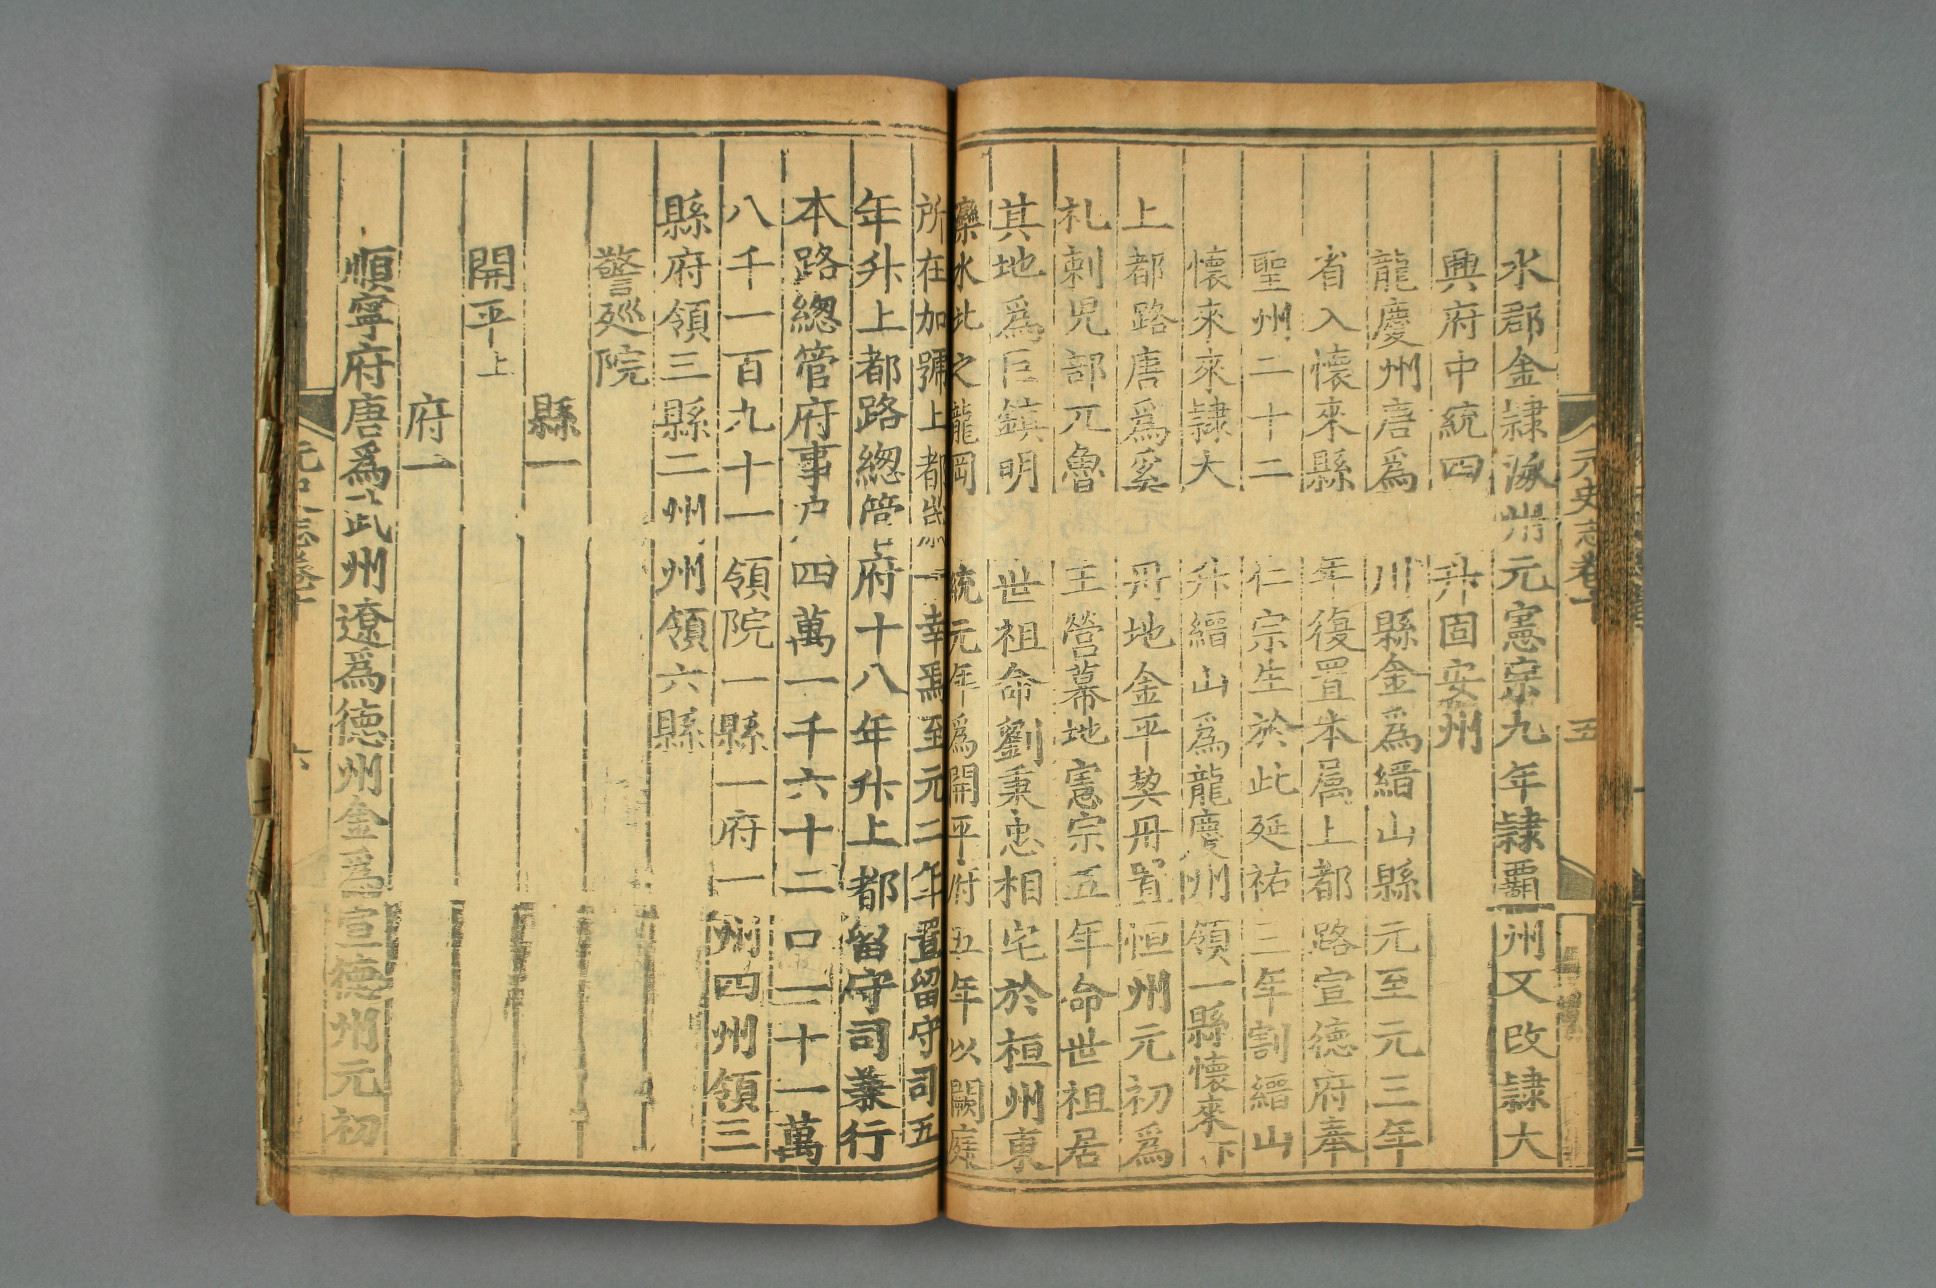 元史志卷十 五
水郡金隷涿州元憲宗九年隷霸州又改隷大
興府中統四 升固安州
龍慶州唐爲 川縣金爲縉山縣元至元三年
省入懷來縣 年復置本屬上都路宣德府奉
聖州二十二 仁宗生於此延祐三年割縉山
懷來來隷大 升縉山爲龍慶州領一縣懷來下
上都路唐爲奚 丹地金平契丹置恒州元初爲
札剌兒部兀魯 王營幕地憲宗五年命世祖居
其地爲巨鎮明 世祖命劉秉忠相宅於桓州東
灤水北之龍岡 統元年爲開平府五年以闕庭
所在加號上都 一幸焉至元二年置留守司五
年升上都路總管府十八年升上都留守司兼行
本路總管府事户四萬一千六十二口一十一萬
八千一百九十一領院一縣一府一州四州領三
縣府領三縣二州 州領六縣
警廵院
縣一
開平上
府一
順寧府唐爲武州遼爲德州金爲宣德州元初
元史志卷十 六